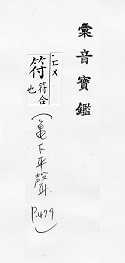 彙音寶鑑
符 符合也
(龜下平聲 P.479